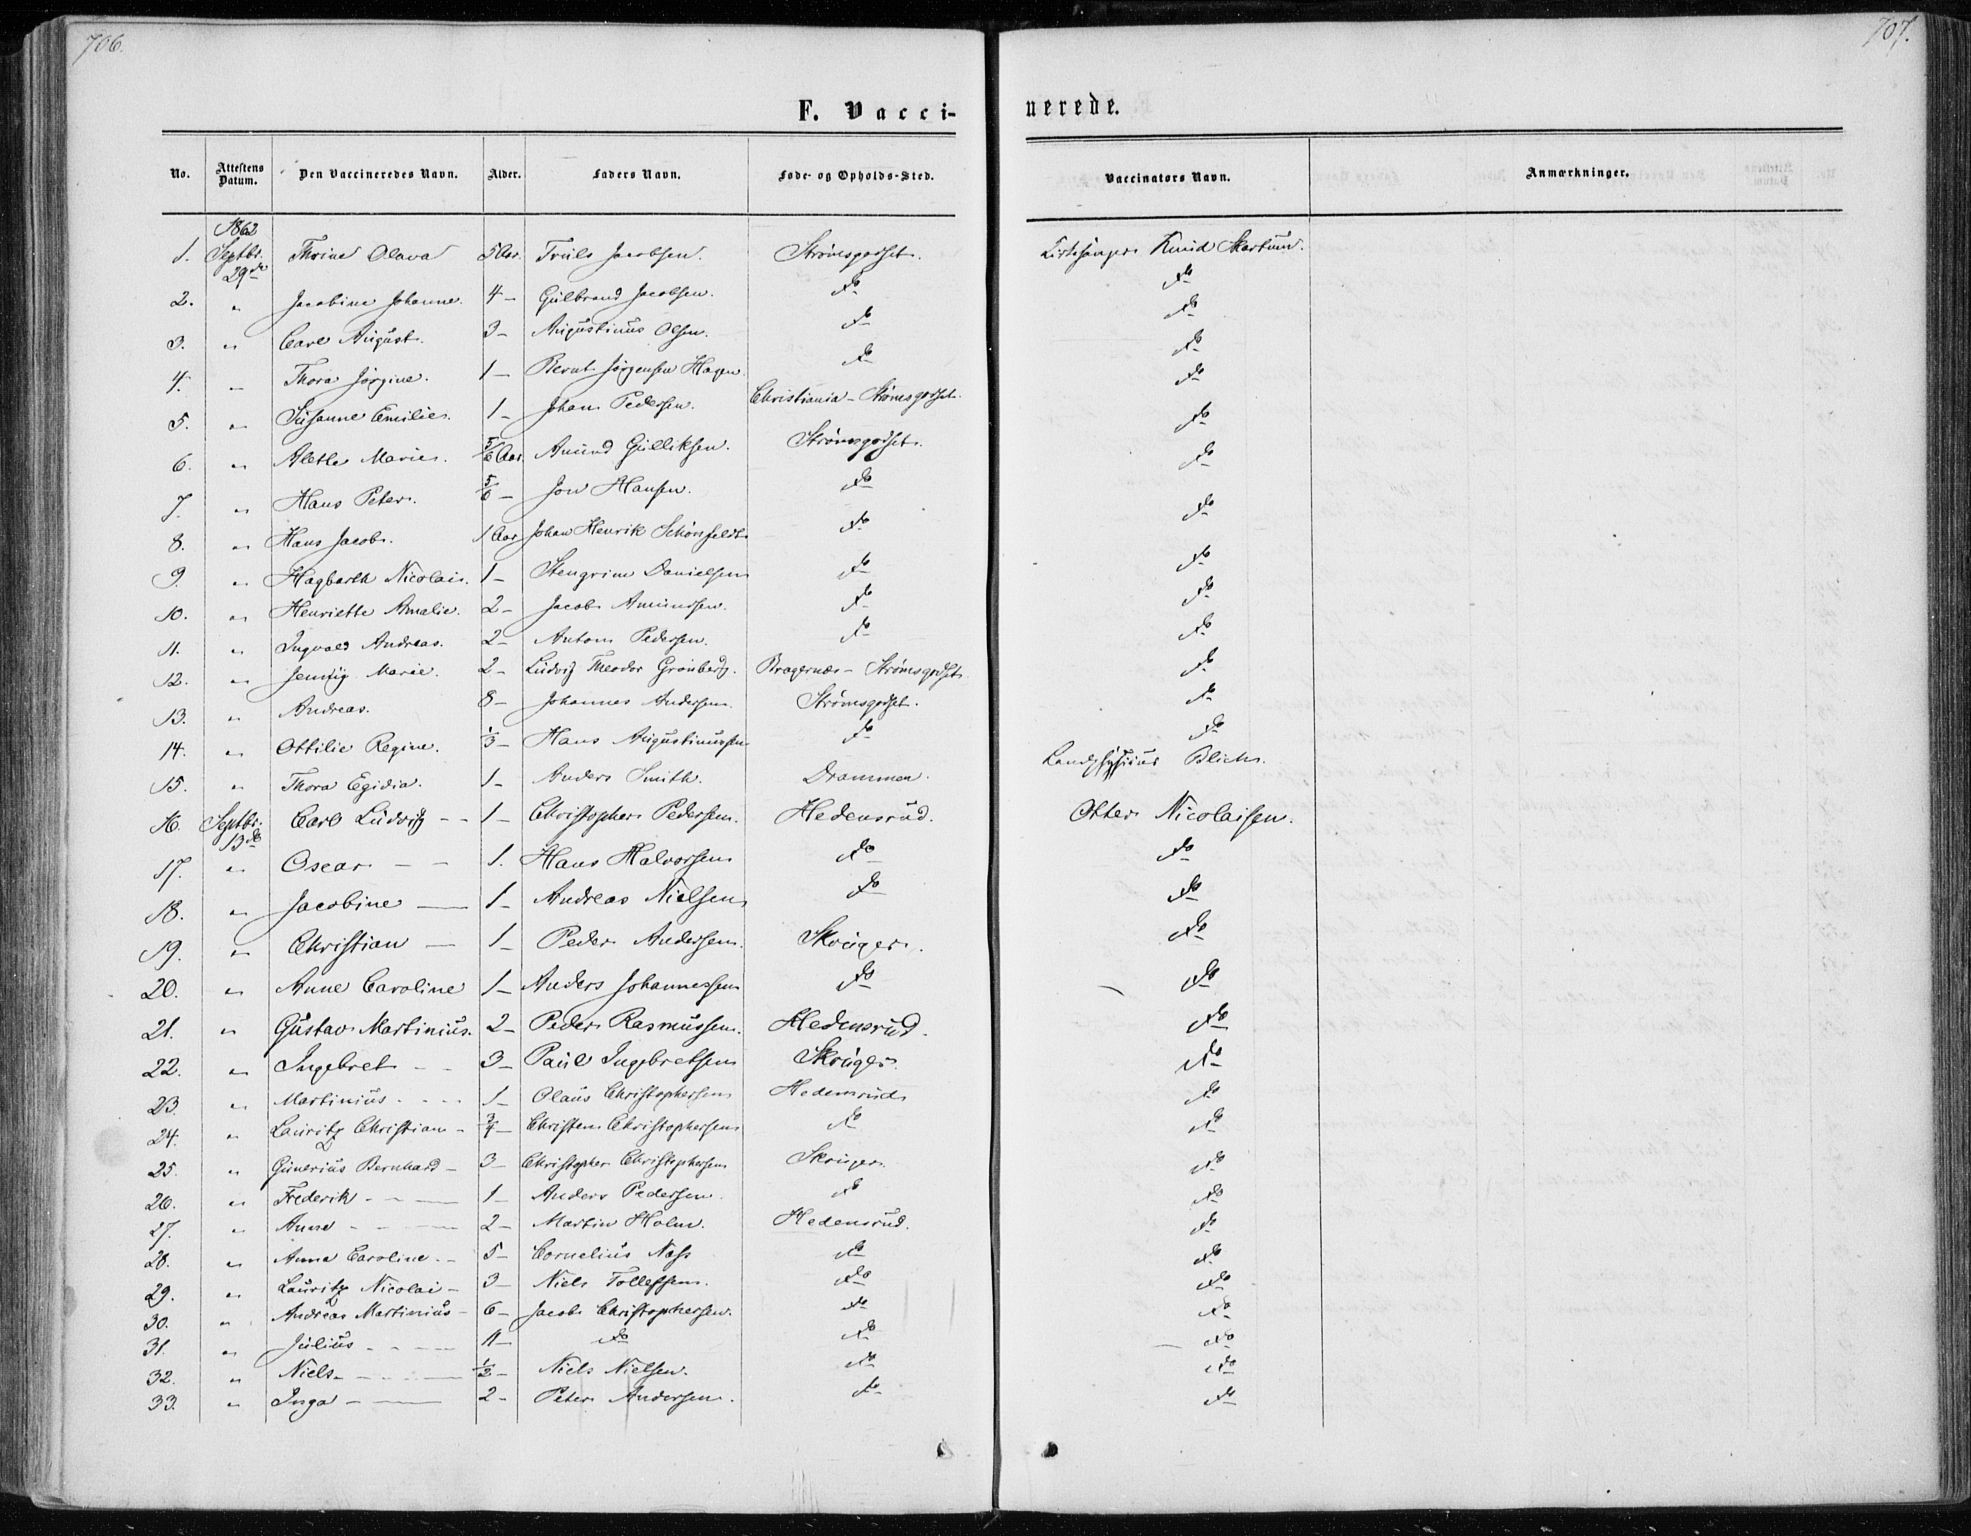 706. 707.
F. Vacci- nerede.
No. Attestens Datum. Den Vaccineredes Navn. Alder. Faders Navn. Føde- og Opholds-Sted. Vaccinators Navn. Anmærkninger.
1862
1. Septbr. 29de Thrine Olava 5 Aar. Truls Jacobsen. Strømsgodset. Kirkesanger Knud Skartum.
2. " Jacobine Johanne. 4 – Gulbrand Jacobsen. do do
3. " Carl August. 3 – Augustinus Olsen. do do
4. " Thora Jørgine. 1 – Bernt Jørgensen Hagen do do
5. " Susanne Emilie. 1 – Johan Pedersen. Christiania – Strømsgodset. do
6. " Alette Marie. 5/6 Aar. Amund Gulliksen. Strømsgodset. do
7. " Hans Peter. 5/6 – Jon Hansen. do do
8. " Hans Jacob. 1 Aar Johan Henrik Schønfeldt do do
9. " Hagbarth Nicolai. 1 – Stengrim Danielsen do do
10. " Henriette Amalie. 2 – Jacob Amundsen. do do
11. " Ingvald Andreas. 2 – Anton Pedersen. do do
12. " Jenny Marie. 2 – Ludvig Theodor Grønberg. Bragernæs – Strømsgodset. do
13. " Andreas. 8 – Johannes Andersen. Strømsgodset. do
14. " Ottilie Regine. 1/3 – Hans Augustinussen do do
15. " Thora Egidia. 1 – Anders Smith. Drammen. Landphysicus Blich.
16. Septbr. 13de Carl Ludvig – – 1 – Christopher Pedersen. Hedensrud. Otter Nicolaisen.
17. " Oscar – – 1. Hans Halvorsen do do
18. " Jacobine — 1 – Andreas Nielsen do do
19. " Christian — 1 – Peder Andersen. Skruger. do
20. " Anne Caroline 1 – Anders Johannessen do do
21. " Gustav Martinius. 2 – Peder Rasmussen. Hedensrud. do
22. " Ingebret – – 3 – Paul Ingebretsen Skruger. do
23. " Martinius – – – 1 – Olaus Christophersen Hedensrud do
24. " Lauritz Christian – 3/4 – Christen Christophersen do do
25. " Gunerius Bernhard – 3 – Christopher Christophersen Skruger. do
26. " Frederik – – — 1 – Anders Pedersen. do do
27. " Anne – – — 2 – Martin Holm. Hedensrud. do
28. " Anna Caroline. – 5 – Cornelius Næss do do
29. " Lauritz Nicolai – 3 – Niels Tollefsen. do do
30. " Andreas Martinius – 6 – Jacob Christophersen. do do
31. " Julius – – – — 11 – do do do
32. " Niels. – – — 1/2 – Niels Nielsen. do do
33. " Inga – — 2 – Peter Andersen. do do